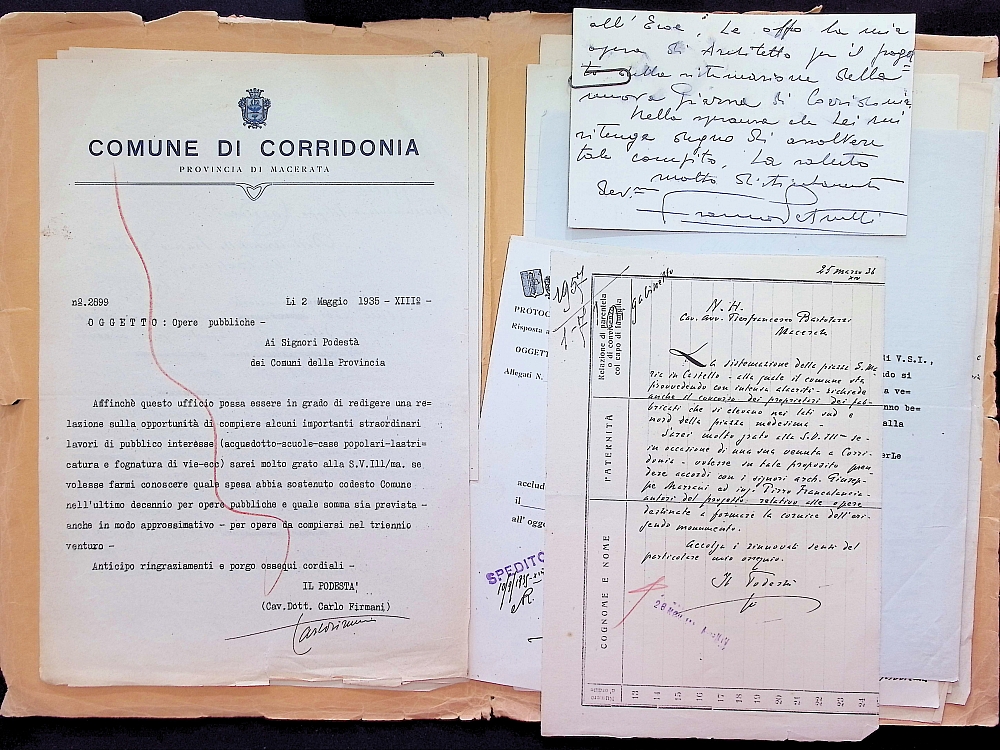 COMUNE DI CORRIDONIA
PROVINCIA DI MACERATA
nº.2899
Li 2 Maggio 1935 - XIIIº -
OGGETTO: Opere pubbliche -
Ai Signori Podestà
dei Comuni della Provincia
Affinchè questo ufficio possa essere in grado di redigere una re=
lazione sulla opportunità di compiere alcuni importanti straordinari
lavori di pubblico interesse (acquedotto-scuole-case popolari-lastri=
catura e fognatura di vie-ecc) sarei molto grato alla S.V.Ill/ma. se
volesse farmi conoscere quale spesa abbia sostenuto codesto Comune
nell'ultimo decennio per opere pubbliche e quale somma sia prevista -
anche in modo approssimativo - per opere da compiersi nel triennio
venturo -
Anticipo ringraziamenti e porgo ossequi cordiali -
IL PODESTA'
(Cav.Dott. Carlo Firmani)
all'Eroe", Le offro la mia
opera di Architetto per il proget=
to della sistemazione della
nuova Piazza di Corridonia
Nella speranza che Lei mi
ritenga degno di assolvere
tale compito, La saluto
molto distintamente
Dev.mo
PROTOC
Risposta a
OGGETT
Allegati N.
acclud
il
all'ogge
SPEDITO
25 marzo 36
XIV
N. H.
Cav. Avv. Pierfrancesco
Macerata
La sistemazione della piazza S. Ma
ria in Castello - alla quale il comune sta
provvedendo con intensa alacrità - richiede
anche il concorso dei proprietari dei fab=
bricati che si elevano nei lati sud e
nord della piazza medesima -
Sarei molto grato alla S.V. Ill= se -
in occasione di una sua venuta a Corri=
donia - volesse su tale proposito pren=
dere accordi con i signori arch. Giusep=
pe Marrani ed ing. Pirro Francalancia -
autori del progetto relativo alle opere
destinate a formare la cornice dell'eri=
gendo monumento.
Accolga i rinnovati sensi del
particolare mio ossequio.
Il Podestà
Relazione di parentela
o di convivenza
col capo di famiglia
PATERNITÀ
COGNOME E NOME
Numero
d'ordine
13 14 15 16 17 18 19 20 21 22 23 24
di V.S.I.,
ndo si
a ve=
nno be=
alla
erLe